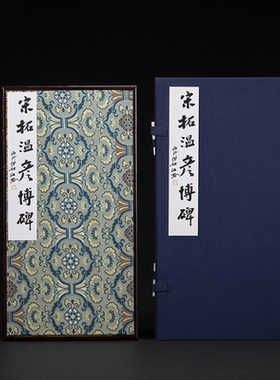 宋拓温彦博碑
宋拓温彦博碑